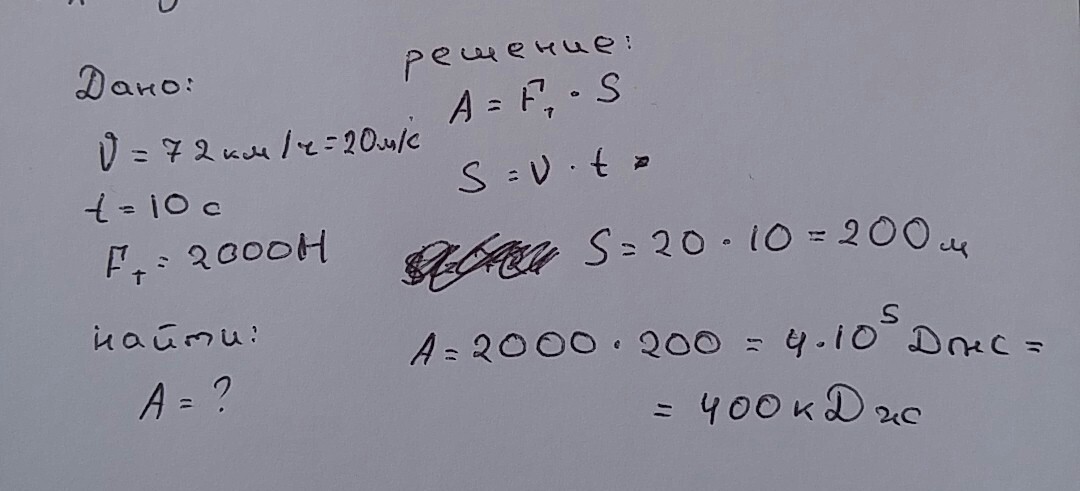 Дано:
υ = 72 км/ч = 20 м/с
t = 10 с
Fт = 2000 Н
найти:
A = ?
решение:
A = Fт · S
S = υ · t
S = 20 · 10 = 200 м
A = 2000 · 200 = 4 · 10⁵ Дж =
= 400 кДж